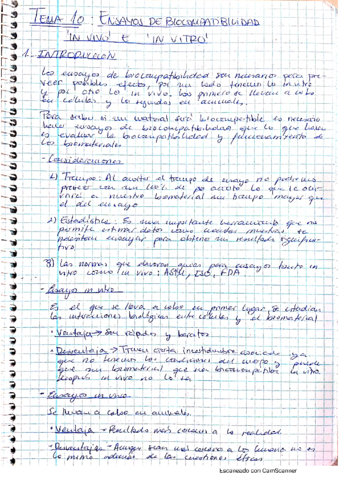 TEMA 10: ENSAYOS DE BIOCOMPATIBILIDAD
'IN VIVO' E 'IN VITRO'
1. INTRODUCCIÓN
Los ensayos de biocompatibilidad son necesarios para pre-
veer posibles efectos, por un lado tenemos lo in vitro
y por otro lo in vivo, los primeros se llevan a cabo
en células y lo segundo en animales.
Para saber si un material será biocompatible es necesario
hacer ensayos de biocompatibilidad que lo que hacen
es evaluar la biocompatibilidad y funcionamiento de
los biomateriales
- Consideraciones
1) Tiempo: Al acortar el tiempo de ensayo no podremos
con un 100% de que
nuestro biomaterial un tiempo mayor que
el del ensayo
2) Estadística: Es una importante herramienta que nos
permite estimar datos como cuantas muestras se
necesitan ensayar para obtener un resultado significa-
tivo.
3) Las normas que tenemos para ensayos tanto in
vitro como in vivo: ASTM, ISO, FDA
- Ensayos in vitro
Es el que se lleva a cabo en primer lugar. Se estudian
las interacciones biológicas entre células y el biomaterial
· Ventaja → Son rápidos y baratos
· Desventaja → Tienen cierta incertidumbre asociada ya
que no tienen las condiciones del cuerpo y puede
que un biomaterial que no biocompatible in vitro
después in vivo no lo sea
- Ensayos in vivo
Se llevan a cabo en animales.
· Ventaja → Resultados más cercanos a la realidad.
· Desventajas - Aunque sean más cercanos a los humanos no es
lo mismo además de las cuestiones éticas
Escaneado con CamScanner